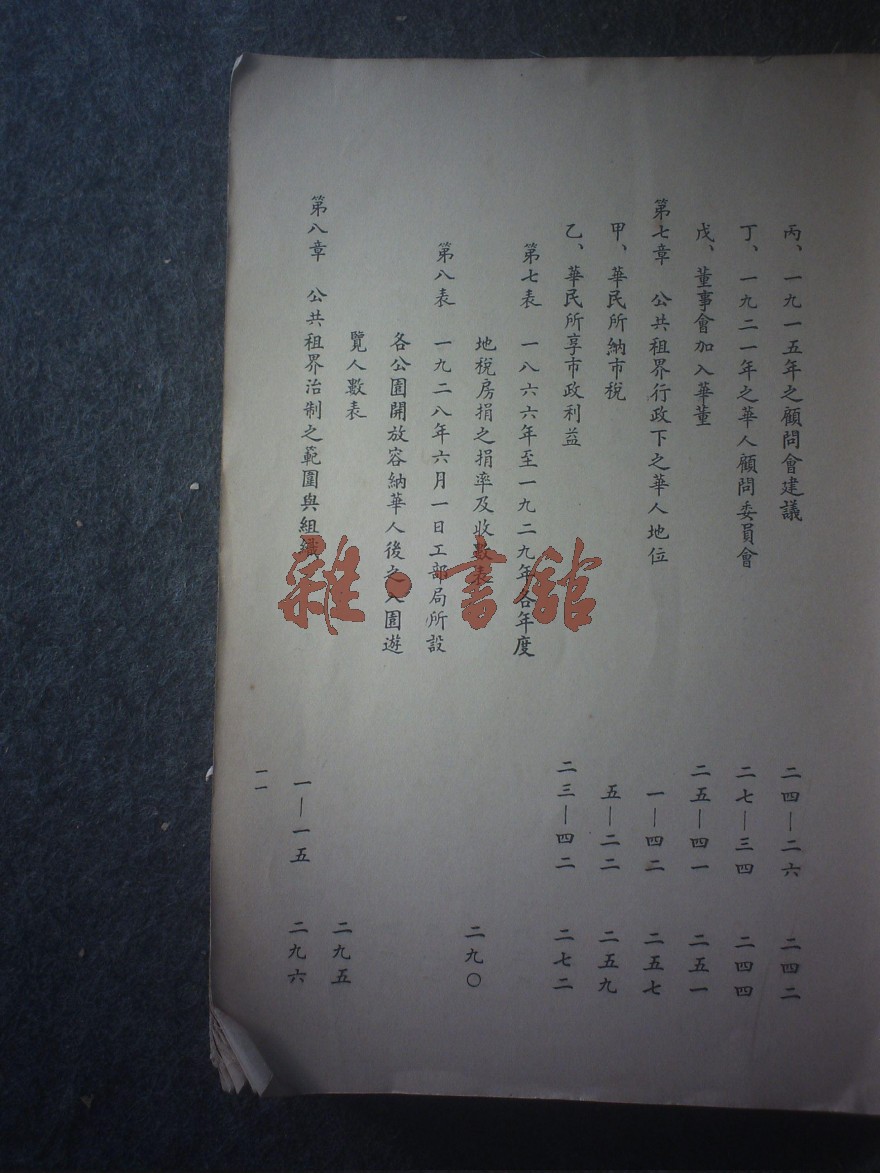 丙、一九一五年之顧問會建議 二四—二六 二四二
丁、一九二一年之華人顧問委員會 二七—三四 二四四
戊、董事會加入華董 二五—四一 二五一
第七章 公共租界行政下之華人地位 一—四二 二五七
甲、華民所納市稅 五—二二 二五九
乙、華民所享市政利益 二三—四二 二七二
第七表 一八六六年至一九二九年各年度
地稅房捐之捐率及收數表 二九〇
第八表 一九二八年六月一日工部局所設
各公園開放容納華人後之入園遊
覽人數表 二九五
第八章 公共租界治制之範圍與組織 一—一五 二九六
一一
雜·書館